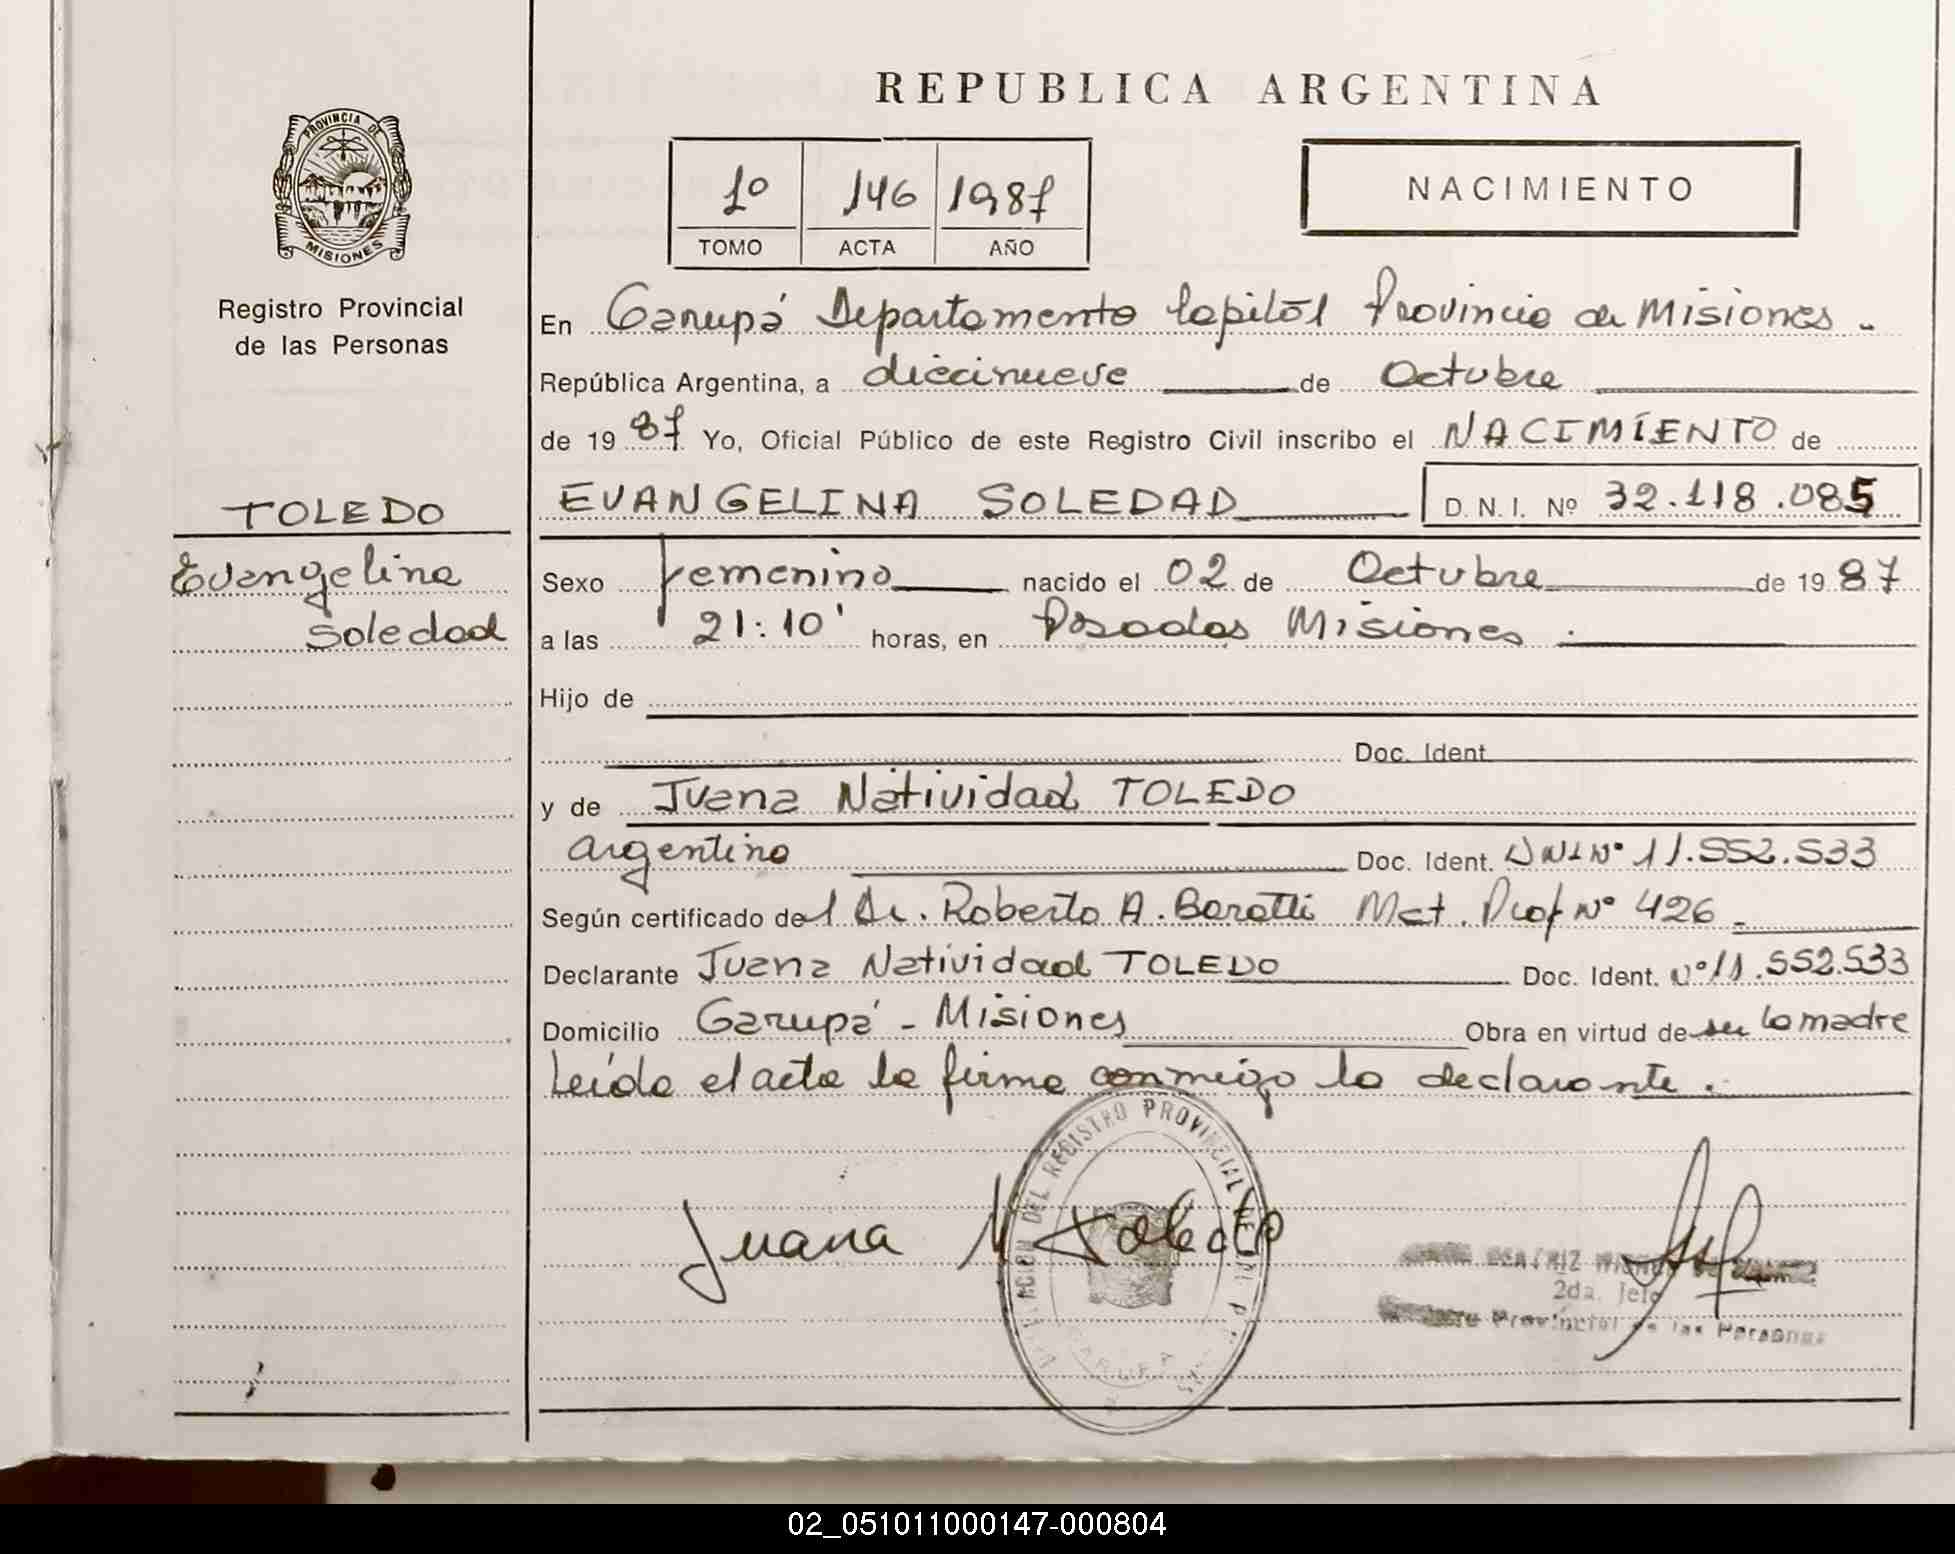 REPUBLICA ARGENTINA
PROVINCIA DE
MISIONES
Registro Provincial
de las Personas
1º 146 1987
TOMO ACTA AÑO
NACIMIENTO
En Garupá Departamento Capital Provincia de Misiones.
República Argentina, a diecinueve de Octubre
de 19 87 Yo, Oficial Público de este Registro Civil inscribo el NACIMIENTO de
EVANGELINA SOLEDAD D.N.I. Nº 32.118.085
TOLEDO
Evangelina
Soledad
Sexo femenino nacido el 02 de Octubre de 19 87
a las 21:10' horas, en Posadas Misiones.
Hijo de
Doc. Ident
y de Juana Natividad TOLEDO
argentina Doc. Ident. DNI Nº 11.552.533
Según certificado del Dr. Roberto A. Baratti Mat. Prof Nº 426.
Declarante Juana Natividad TOLEDO Doc. Ident. Nº 11.552.533
Domicilio Garupá - Misiones Obra en virtud de ser la madre
Leída el acta la firma conmigo la declarante.
DEL REGISTRO PROVINCIAL DE
GARUPA
Juana N Toledo
BEATRIZ
2da. Jefe
Provincial de las Personas
02_051011000147-000804